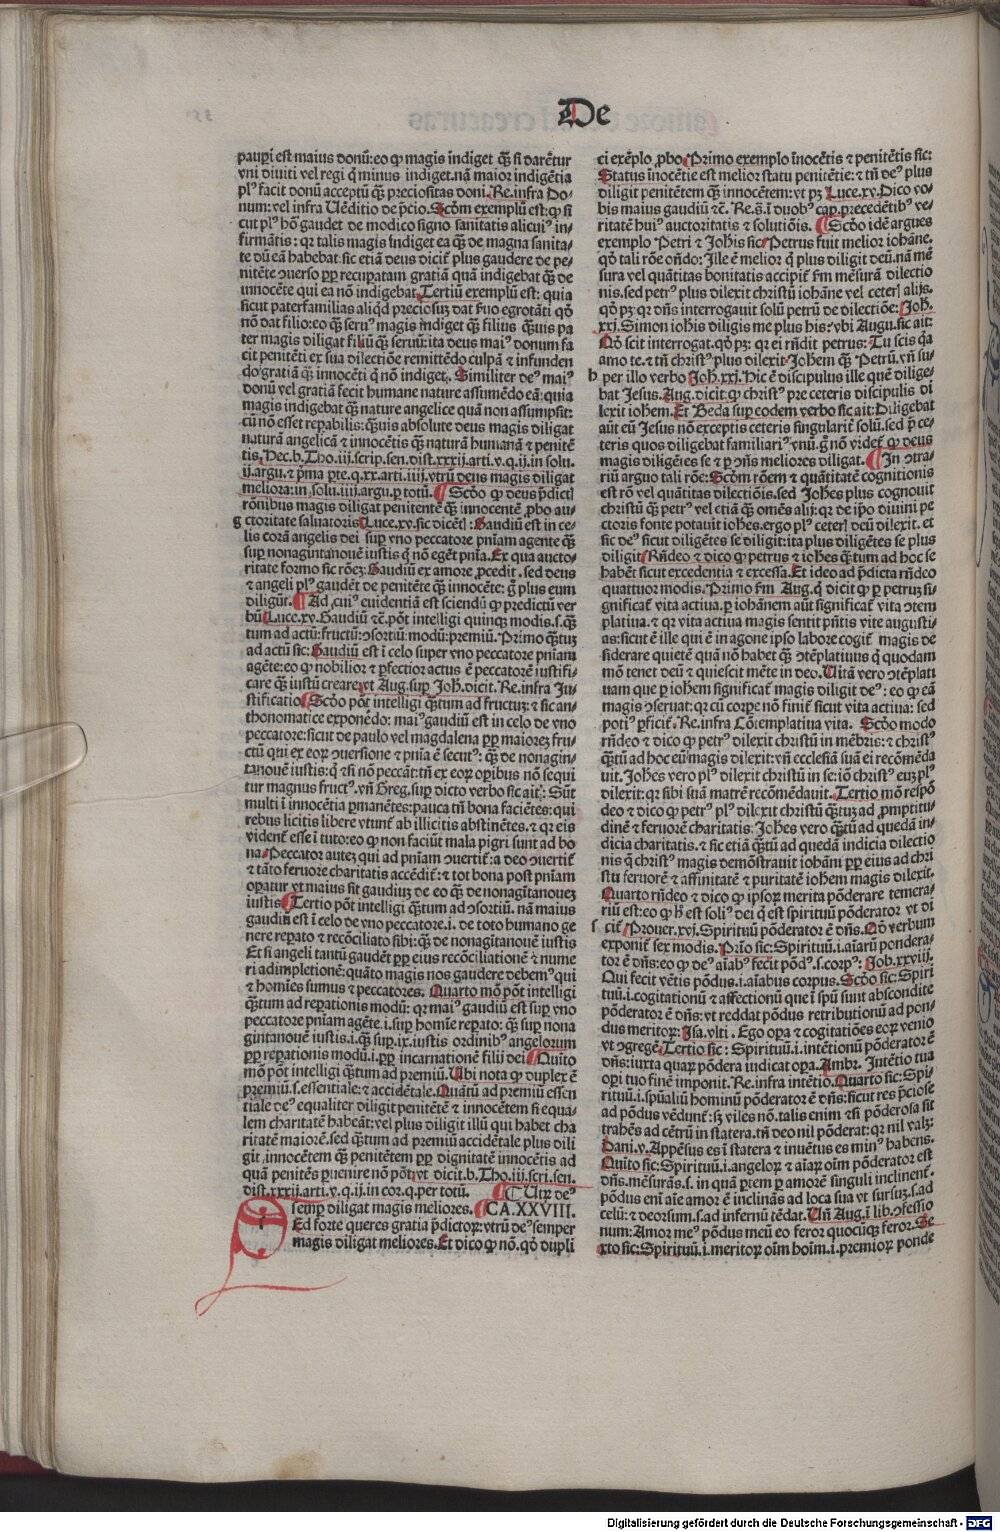 De
pauꝑi est maius donū: eo ꝙ magis indiget qꝫ si darētur
vni diuiti vel regi q̇ minus indiget. nā maior indigētia
plꝰ facit donū acceptū qꝫ preciositas doni. Re. infra Do-
num: vel infra Uēditio de p̄cio. Scd̄m exemplū est: ꝙ si
cut plꝰ hō gaudet de modico signo sanitatis alicuiꝰ in-
firmātis: qr talis magis indiget ea qꝫ de magna sanita-
te dū eā habebat: sic etiā deus dicit plus gaudere de pe-
nitēte ꝯuerso ꝓpter recuꝑatam gratiā quā indigebat qꝫ de
innocēte qui ea nō indigebat. Tertiū exemplū est: quia
sicut paterfamilias aliqd̄ preciosuꝫ dat ẜuo egrotāti qd̄
nō dat filio: eo qꝫ seruꝰ magis indiget qꝫ filius qꝫuis pa
ter magis diligat filiū qꝫ seruū: ita deus maiꝰ donum fa
cit penitēti ex sua dilectiōe remittēdo culpā & infunden
do gratiā qꝫ innocēti q̇ nō indiget. Similiter deꝰ maiꝰ
donū vel gratiā fecit humane nature assumēdo eā: quia
magis indigebat qꝫ nature angelice quā non assumpsit:
cū nō esset reꝑabilis: qꝫuis absolute deus magis diligat
naturā angelicā & innocētis qꝫ naturā humanā & penitē
tis. Hec. b. Tho. iij. scrip. sen. dist. xxxij. arti. v. q. ij. in solu.
ij. argu. & p̄ma ꝑte. q. xx. arti. iiij. vtrū deus magis diligat
meliora: in solu. iiij. argu. ꝑ totū. Scd̄o ꝙ deus p̄dictꝭ
rōnibus magis diligat penitentē qꝫ innocentē ꝓbo au-
g ctoritate saluatoris Luce. xv. sic dicētꝭ: Gaudiū est in ce-
lis corā angelis dei suꝑ vno peccatore pniam agente qꝫ
suꝑ nonagintanouē iustis q̇ nō egēt pnīa. Ex qua aucto-
ritate formo sic rōeꝫ: Gaudiū ex amore ꝓcedit. sed deus
& angeli plꝰ gaudēt de penitēte qꝫ innocēte: g̊ plus eum
diligūt. Ad cuiꝰ euidentiā est sciendū ꝙ predictū ver
bū Luce. xv. Gaudiū &c. pōt intelligi quinqꝫ modis. s. qꝫ
tum ad actū: fructū: ꝯsortiū: modū: premiū. Primo qꝫtuꝫ
ad actū sic: Gaudiū est ī celo super vno peccatore pniam
agēte: eo ꝙ nobilior & ꝑfectior actus ē peccatorē iustifi-
care qꝫ iustū creare: vt Aug. suꝑ Joh. dicit. Re. infra Ju-
stificatio. Scd̄o pōt intelligi qꝫtum ad fructuꝫ: & sic an-
thonomatice exponēdo: maiꝰ gaudiū est in celo de vno
peccatore: sicut de paulo vel magdalena ꝓpter maioreꝫ fru-
ctū qui ex eoꝝ ꝯuersione & pnīa ē secutꝰ: qꝫ de nonagin-
tanouē iustis: q̇ & si nō peccāt: tn̄ ex eoꝝ oꝑibus nō sequi
tur magnus fructꝰ. vn̄ Greg. suꝑ dicto verbo sic ait: Sūt
multi ī innocētia ꝑmanētes: pauca tn̄ bona faciētes: qui
rebus licitis libere vtunt̄ ab illicitis abstinētes. & qr eis
vident̄ esse ī tuto: eo ꝙ non faciūt mala pigri sunt ad bo
na. Peccator auteꝫ qui ad pniam ꝯuertit̄: a deo ꝯuertit̄
& tāto feruore charitatis accēdit̄: & tot bona post pniam
oꝑatur vt maius sit gaudiuꝫ de eo qꝫ de nonagītanoueꝫ
iustis. Tertio pōt intelligi qꝫtum ad ꝯsortiū. nā maius
gaudiū est ī celo de vno peccatore. i. de toto humano ge
nere reꝑato & recōciliato sibi: qꝫ de nonagītanouē iustis
Et si angeli tantū gaudēt ꝓpter eius recōciliationē & nume
ri adimpletionē: quāto magis nos gaudere debemꝰ qui
& homīes sumus & peccatores. Quarto mō pōt intelligi
qꝫtum ad reꝑationis modū: qr maiꝰ gaudiū est suꝑ vno
peccatore pniam agēte. i. suꝑ homīe reꝑato: qꝫ suꝑ nona
gintanouē iustis. i. qꝫ suꝑ. ix. iustis ordinibꝰ angelorum
ꝓpter reꝑationis modū. i. ꝓpter incarnationē filii dei. Quīto
mō pōt intelligi qꝫtum ad premiū. Ubi nota ꝙ duplex ē
premiū. s. essentiale: & accidētale. Quātū ad premiū essen
tiale deꝰ equaliter diligit penitētē & innocētem si equa-
lem charitatē habeāt: vel plus diligit illū qui habet cha
ritatē maiorē. sed qꝫtum ad premiū accidētale plus dili
git innocētem qꝫ penitētem ꝓpter dignitatē innocētis ad
quā penitēs ꝑuenire nō pōt: vt dicit. b. Tho. iij. scri. sen.
dist. xxxij. arti. v. q. ij. in cor. q. per totū. Utꝝ deꝰ
semꝑ diligat magis meliores. CA. XXVIII.
Sed forte queres gratia p̄dictoꝝ: vtrū deꝰ semper
magis diligat meliores. Et dico ꝙ nō. qd̄ dupli
ci exēplo ꝓbo. Primo exemplo īnocētis & penitētis sic:
Status īnocētie est melior statu penitētie: & tn̄ deꝰ plus
diligit penitētem qꝫ innocētem: vt pꝫ Luce. xv. Dico vo-
bis maius gaudiū &c. Re. s̄. ī duobꝰ cap. precedētibꝰ ve-
ritatē huiꝰ auctoritatis & solutiōis. Scd̄o idē argues
exemplo Petri & Johis sic: Petrus fuit melior iohāne.
qd̄ tali rōe oñdo: Ille ē melior q̇ plus diligit deū. nā mē
sura vel quātitas bonitatis accipit̄ ẜm mēsurā dilectio
nis. sed petrꝰ plus dilexit christū iohāne vel ceterꝭ alijs.
qd̄ pꝫ: qr dn̄s interrogauit solū petrū de dilectiōe: Joh.
xxj. Simon iohis diligis me plus his: vbi Augu. sic ait:
Qd̄ scit interrogat. qd̄ pꝫ: qr ei rn̄dit petrus: Tu scis qa
amo te. & tn̄ christꝰ plus dilexit Johem qꝫ Petrū. vn̄ su-
b per illo verbo Joh. xxj. Hic ē discipulus ille quē dilige-
bat Jesus. Aug. dicit ꝙ christꝰ pre ceteris discipulis di
lexit iohem. Et Beda suꝑ eodem verbo sic ait: Diligebat
aūt eū Jesus nō exceptis ceteris singularit̄ solū. sed p̄ ce-
teris quos diligebat familiariꝰ vnū. g̊ nō videt̄ ꝙ deus
magis diligēies se & ꝑ ꝯn̄s meliores diligat. In ꝯtra-
riū arguo tali rōe: Scd̄m rōem & quātitatē cognitionis
est rō vel quātitas dilectiōis. sed Johēs plus cognouit
christū qꝫ petrꝰ vel etiā qꝫ omēs alij: qr de ip̄o diuini pe
ctoris fonte potauit iohes. ergo plꝰ ceterꝭ deū dilexit. et
sic deꝰ sicut diligētes se diligit: ita plus diligētes se plus
diligit. Rn̄deo & dico ꝙ petrus & iohes qꝫtum ad hoc se
habēt sicut excedentia & excessa. Et ideo ad p̄dicta rn̄deo
quattuor modis. Primo ẜm Aug. q̇ dicit ꝙ ꝑ petruꝫ si-
gnificat̄ vita actiua. ꝑ iohānem aūt significat̄ vita ꝯtem
platiua. & qr vita actiua magis sentit pn̄tis vite augusti-
as: sicut ē ille qui ē in agone ipso labore cogit̄ magis de
siderare quietē quā nō habet qꝫ ꝯtēplatiuus q̇ quodam
mō tenet deū & quiescit mēte in deo. Uitā vero ꝯtēplati
uam que ꝑ iohem significat̄ magis diligit deꝰ: eo ꝙ eā
magis ꝯseruat: qr cū corꝑe nō finit̄ sicut vita actiua: sed
potiꝰ ꝑficit̄. Re. infra Cōtemplatiua vita. Scd̄o modo
rn̄deo & dico ꝙ petrꝰ dilexit christū in mēbris: & christꝰ
qꝫtū ad hoc eū magis dilexit: vn̄ ecclesiā suā ei recōmēda
uit. Johes vero plꝰ dilexit christū in se: iō christꝰ euꝫ plꝰ
dilexit: qr sibi suā matrē recōmēdauit. Tertio mō respō
deo & dico ꝙ petrꝰ plꝰ dilexit christū qꝫtuꝫ ad ꝓmptitu-
dinē & feruorē charitatis: Johes vero qꝫtū ad quedā in-
dicia charitatis. & sic etiā qꝫtū ad quedā indicia dilectio
nis q̇ christꝰ magis demōstrauit iohāni ꝓpter eius ad chri
stū feruorē & affinitatē & puritatē iohem magis dilexit.
Quarto rn̄deo & dico ꝙ ipsoꝝ merita pōderare temera-
riū est: eo ꝙ h̄ est soliꝰ dei q̇ est spirituū pōderator vt di
s cit̄ Prouer. xvj. Spirituū pōderator ē dn̄s. Qd̄ verbum
exponit̄ sex modis. Prio sic: Spirituū. i. aīarū pondera-
tor ē dn̄s: eo ꝙ deꝰ aīabꝰ fecit pōdꝰ. s. corpꝰ: Job. xxviij.
Qui fecit vētis pōdus. i. aīabus corpus. Scd̄o sic: Spiri
tuū. i. cogitationū & affectionū que ī spū sunt abscondite
pōderator ē dn̄s: vt reddat pōdus retributionū ad pon-
dus meritoꝝ: Isa. vlti. Ego oꝑa & cogitatiōes eoꝝ venio
vt ꝯgregē. Tertio sic: Spirituū. i. intētionū pōderator ē
dn̄s: iuxta quaꝝ pōdera iudicat oꝑa. Ambr. Intētio tua
oꝑi tuo finē imponit. Re. infra intētio. Quarto sic: Spi-
rituū. i. sp̄ualiū hominū pōderator ē dn̄s: sicut res p̄ciose
ad pōdus vēdunt̄: sꝫ viles nō. talis enim & si pōderosa sit
trahēs ad cētrū in statera. tn̄ deo nil pōderat: qr nil valꝫ:
Dani. v. Appēsus es ī statera & inuētus es minꝰ habens.
Quīto sic: Spirituū. i. angeloꝝ & aīaꝝ oīm pōderator est
dn̄s. mēsurās. s. in quā ꝑtem ꝑ amorē singuli inclinent̄.
pōdus eni aīe amor ē inclinās ad loca sua vt sursuꝫ. s. ad
celū: & deorsum. s. ad infernū tēdat. Un̄ Aug. ī lib. ꝯfessio
num: Amor meꝰ pōdus meū eo feror quocūqꝫ feror. Se
xto sic: Spirituū. i. meritoꝝ oīm hoīm. i. premioꝝ ponde
Digitalisierung gefördert durch die Deutsche Forschungsgemeinschaft - DFG